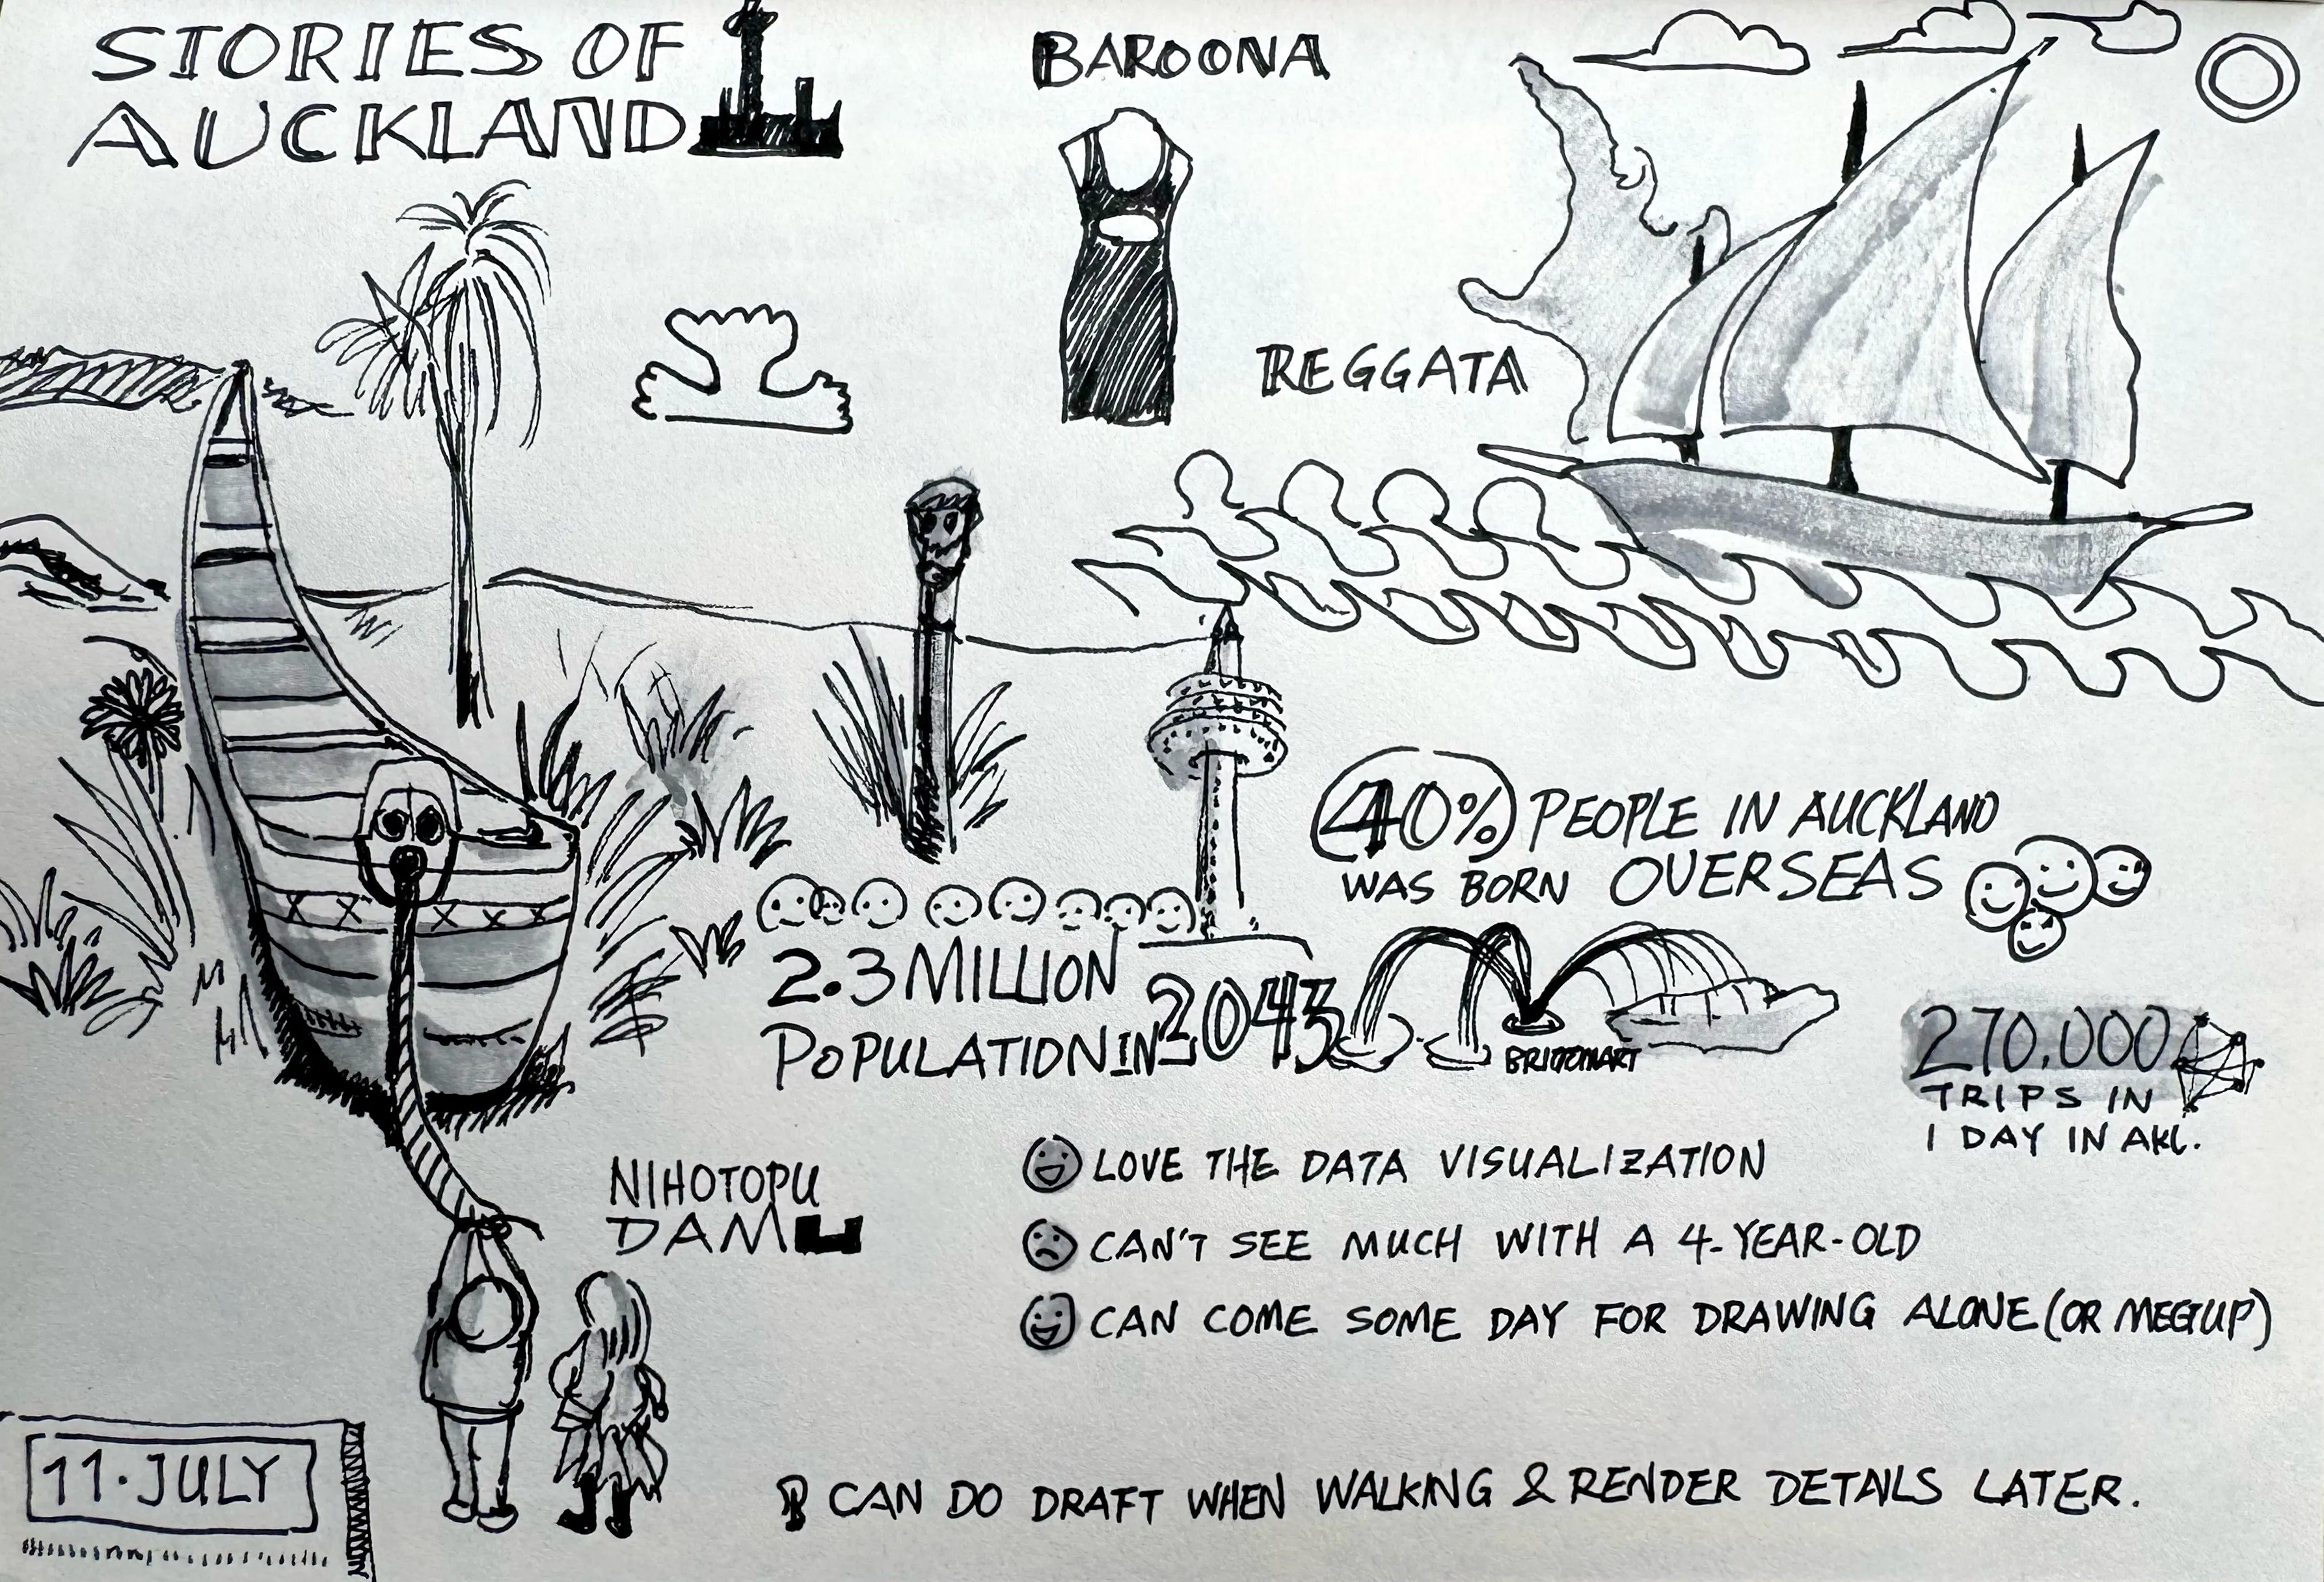 STORIES OF
AUCKLAND
BAROONA
REGGATA
40% PEOPLE IN AUCKLAND
WAS BORN OVERSEAS
2.3 MILLION
POPULATION IN 2043
BRITOMART
270,000
TRIPS IN
1 DAY IN AKL.
NIHOTOPU
DAM
LOVE THE DATA VISUALIZATION
CAN'T SEE MUCH WITH A 4-YEAR-OLD
CAN COME SOME DAY FOR DRAWING ALONE (OR MEETUP)
11·JULY
CAN DO DRAFT WHEN WALKING & RENDER DETAILS LATER.